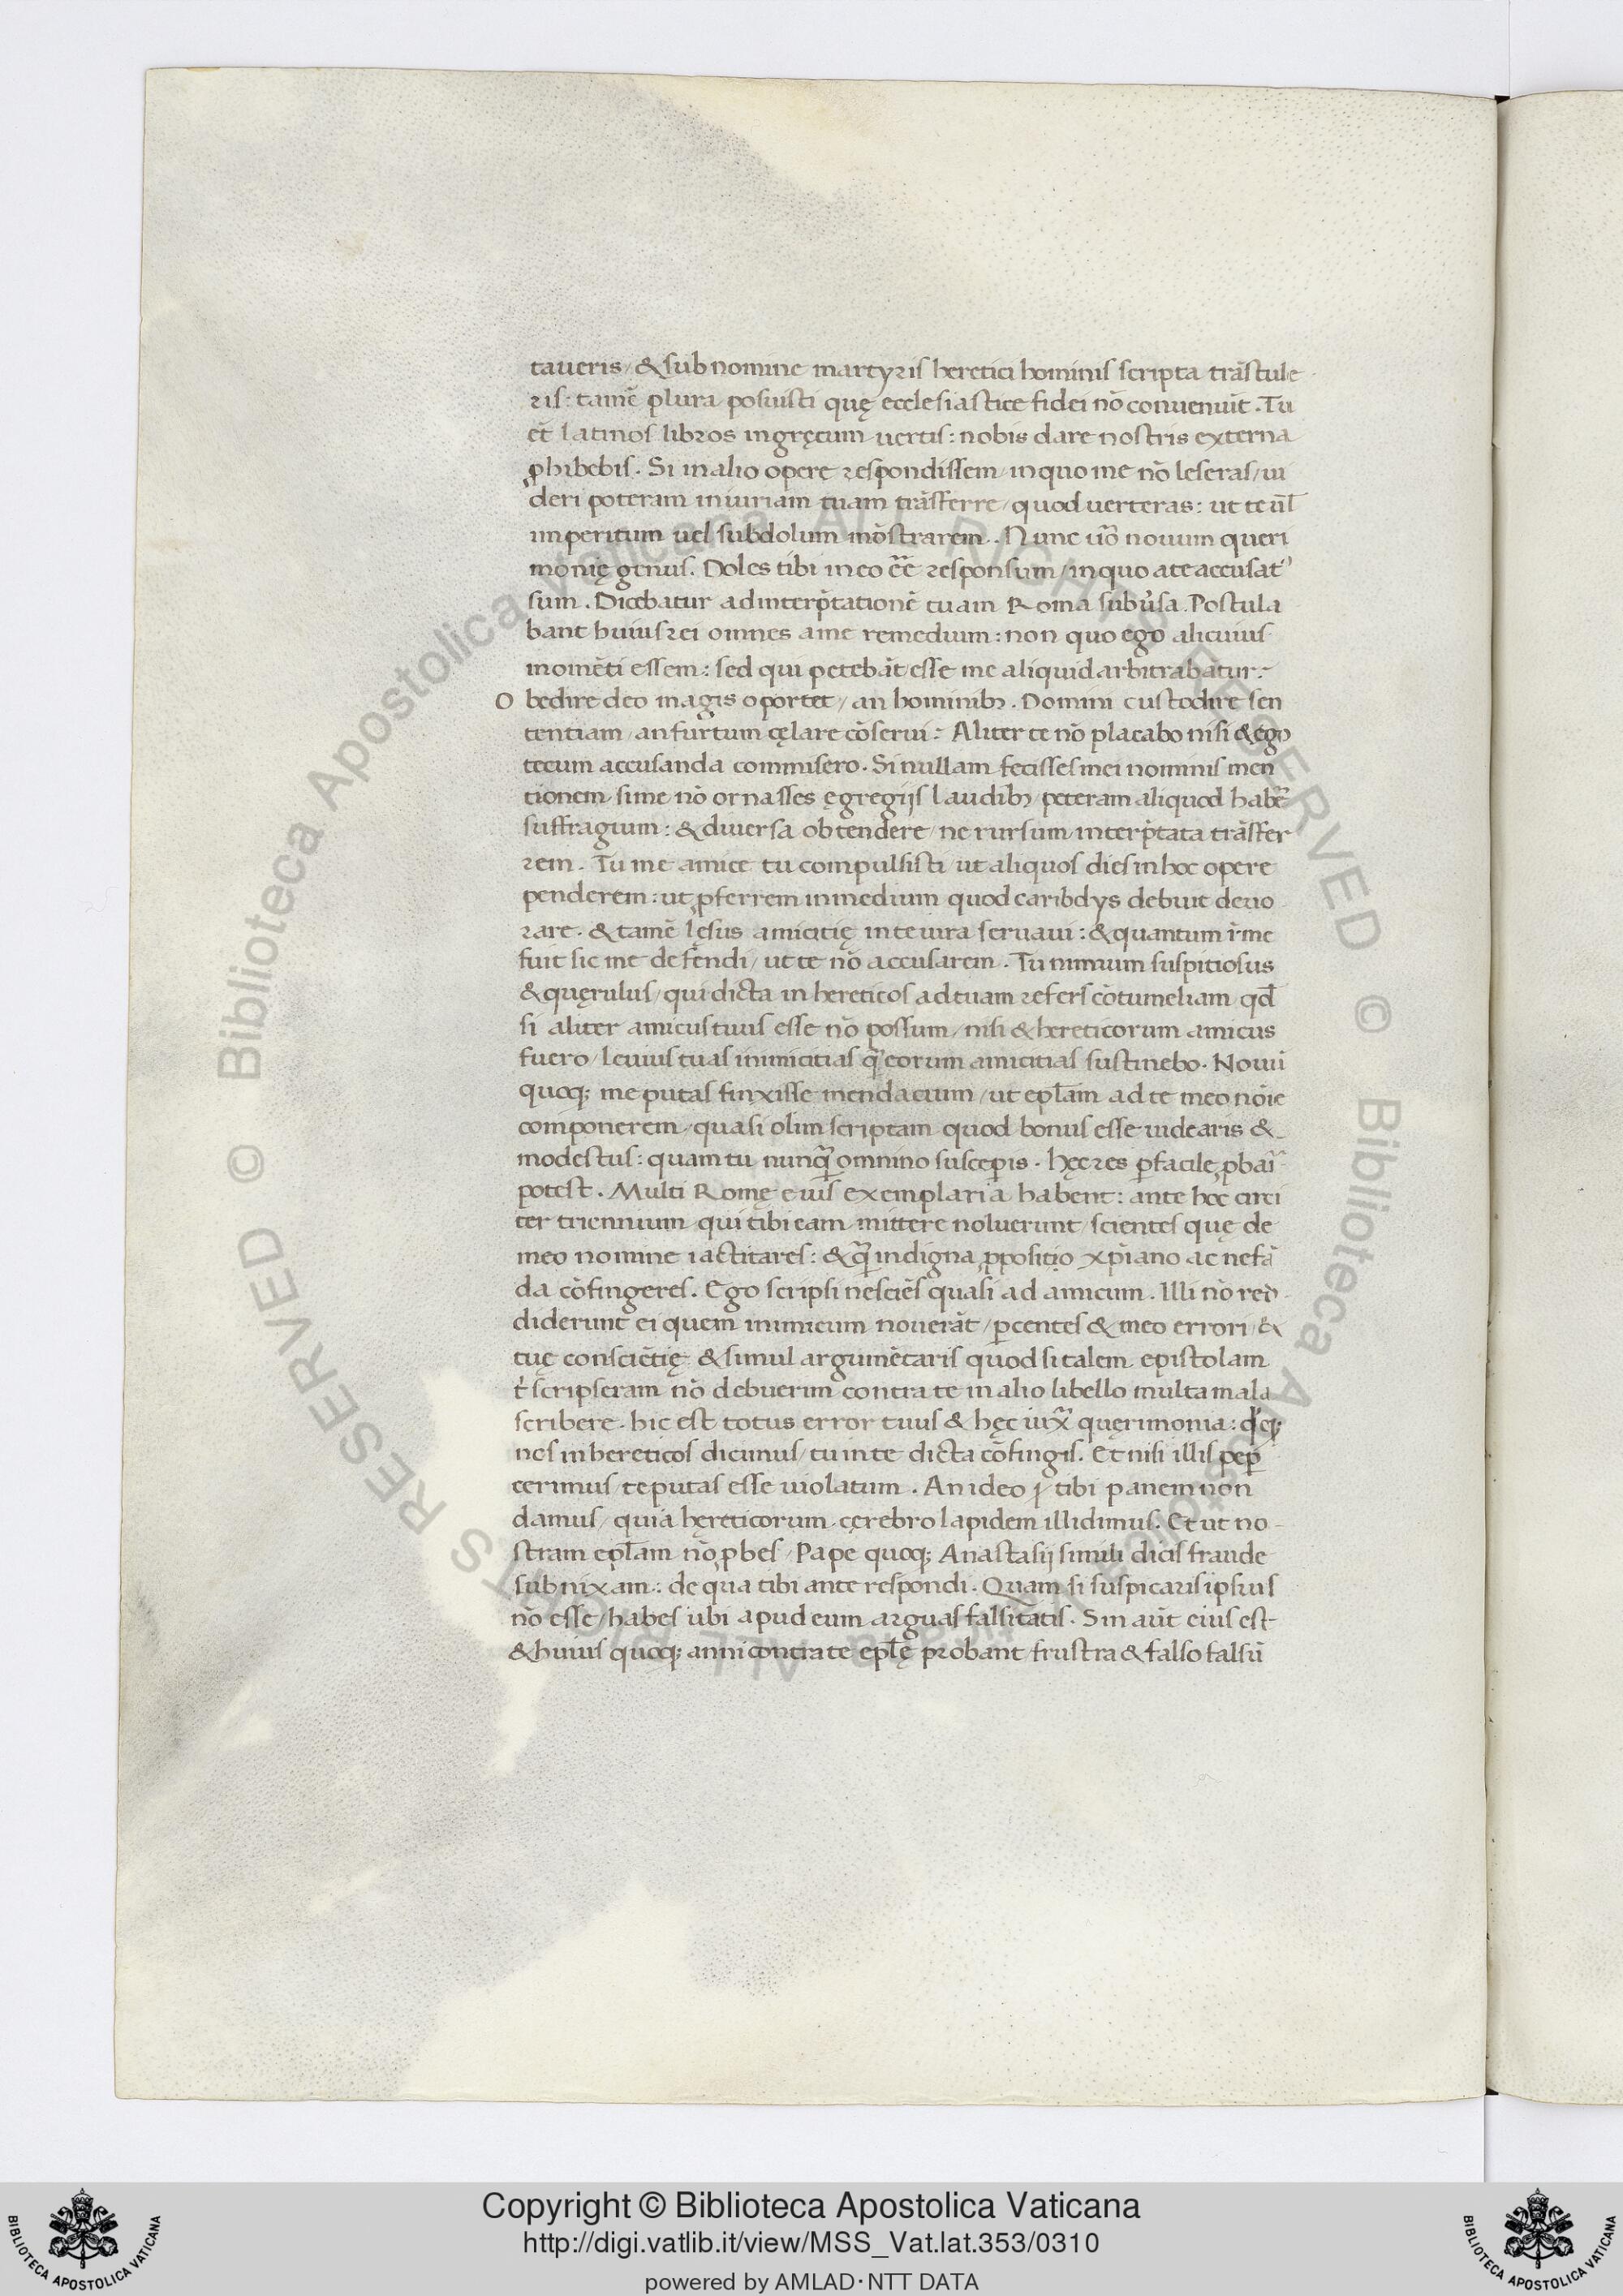 taueris / & sub nomine martyris heretici hominis scripta trāstule
ris : tamē plura posuisti quę ecclesiastice fidei nō conueniūt . Tu
et̄ latinos libros in gręcum uertis : nobis dare nostris externa
ꝓhibebis . Si in alio opere respondissem / in quo me nō leseras / ui
deri poteram iniuriam tuam trāsferre / quod uerteras : ut te ul̄
imperitum uel subdolum mōstrarem . Nunc uō nouum queri
monię genus . Doles tibi in eo ee̅ responsum / in quo a te accusatꝰ
sum . Dicebatur ad interp̄tationē tuam Roma subūsa . Postula
bant huius rei omnes a me remedium : non quo ego alicuius
momēti essem : sed qui petebāt / esse me aliquid arbitrabātur .
Obedire deo magis oportet / an hominibꝫ . Domini custodire sen
tentiam / an furtum cęlare cōserui : Aliter te nō placabo nisi & ego
tecum accusanda commisero . Si nullam fecisses mei nominis men
tionem / si me nō ornasses ęgregijs laudibꝫ / peteram aliquod habē
suffragium : & diuersa obtendere / ne rursum interp̄tata trāsfer
rem . Tu me amice tu compulsisti / ut aliquos dies in hoc opere
penderem : ut ꝓferrem in medium quod caribdys debuit deuo
rare . & tamē lęsus amicitię in te iura seruaui : & quantum ī me
fuit sic me defendi / ut te nō accusarem . Tu nimium suspitiosus
& quęrulus / qui dicta in hereticos ad tuam refers cōtumeliam / qd̄
si aliter amicus tuus esse nō possum / nisi & hereticorum amicus
fuero / leuius tuas inimicitias q̄ eorum amicitias sustinebo . Nouū
quoqꝫ me putas finxisse mendacium / ut epl̄am ad te meo nōie
componerem / quasi olim scriptam quod bonus esse uidearis &
modestus : quam tu nunq̄ omnino susceperis . hęc res ꝑfacile ꝓbari
potest . Multi Romę eius exemplaria habent : ante hoc circi
ter triennium / qui tibi eam mittere noluerunt / scientes quę de
meo nomine iactitares : & q̄ indigna ꝓpositio xp̄iano ac nefā
da cōfingeres . Ego scripsi nesciēs quasi ad amicum . Illi nō red
diderunt ei quem inimicum nouerāt / ꝑcentes & meo errori / &
tuę consciētię & simul argumētaris quod si talem epistolam
t̄ scripseram nō debuerim contra te in alio libello multa mala
scribere . hic est totus error tuus & hęc quęrimonia :
nos in hereticos dicimus / tu in te dicta cōfingis . Et nisi illis peꝑ
cerimus / te putas esse uiolatum . An ideo tibi panem non
damus / quia hęreticorum cęrebro lapidem illidimus . Et ut no
stram epl̄am nō ꝓbes / Pape quoqꝫ Anastasij simili dicis fraude
subnixam : de qua tibi ante respondi . Quam si suspicaris ipsius
nō esse / habes ubi apud eum arguas falsitatis . Sin aūt eius est
& huius quoqꝫ anni contra te epl̄ę probant / frustra & falso falsū
Copyright © Biblioteca Apostolica Vaticana
http://digi.vatlib.it/view/MSS_Vat.lat.353/0310
powered by AMLAD·NTT DATA